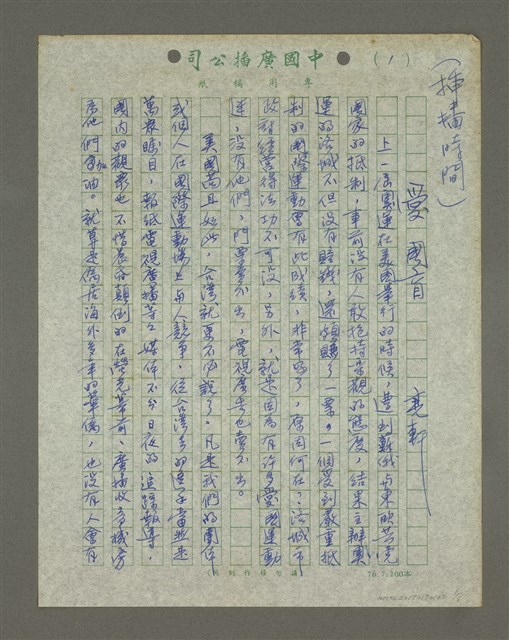 中國廣播公司
（1）
專用稿紙
（插播時間）
愛國盲
亮軒
上一屆奧運在美國舉行的時候，遭到蘇俄與東歐共黨
國家的抵制，事前沒有人敢抱持樂觀的態度，結果主辦奧
運的洛城不但沒有賠錢，還頗賺了一票。一個受到嚴重抵
制的國際運動會有此成績，非常好了，原因何在？洛城市
政府經營得法功不可沒，另外，就是因為有許多愛國運動
迷，沒有他們，門票賣不出，電視廣告也賣不出。
美國尚且如此，台灣就更不必說了。凡是我們的團体
或個人在國際運動場上與人競爭，從台灣去的選手當然是
萬眾矚目，報紙電視廣播等等媒体不分日夜的追踪報導，
國內的觀眾也不惜晨昏顛倒的在螢光幕前、廣播收音機旁
為他們加油。就算是僑居海外多年的華僑，也沒有人會有
76.7.200本